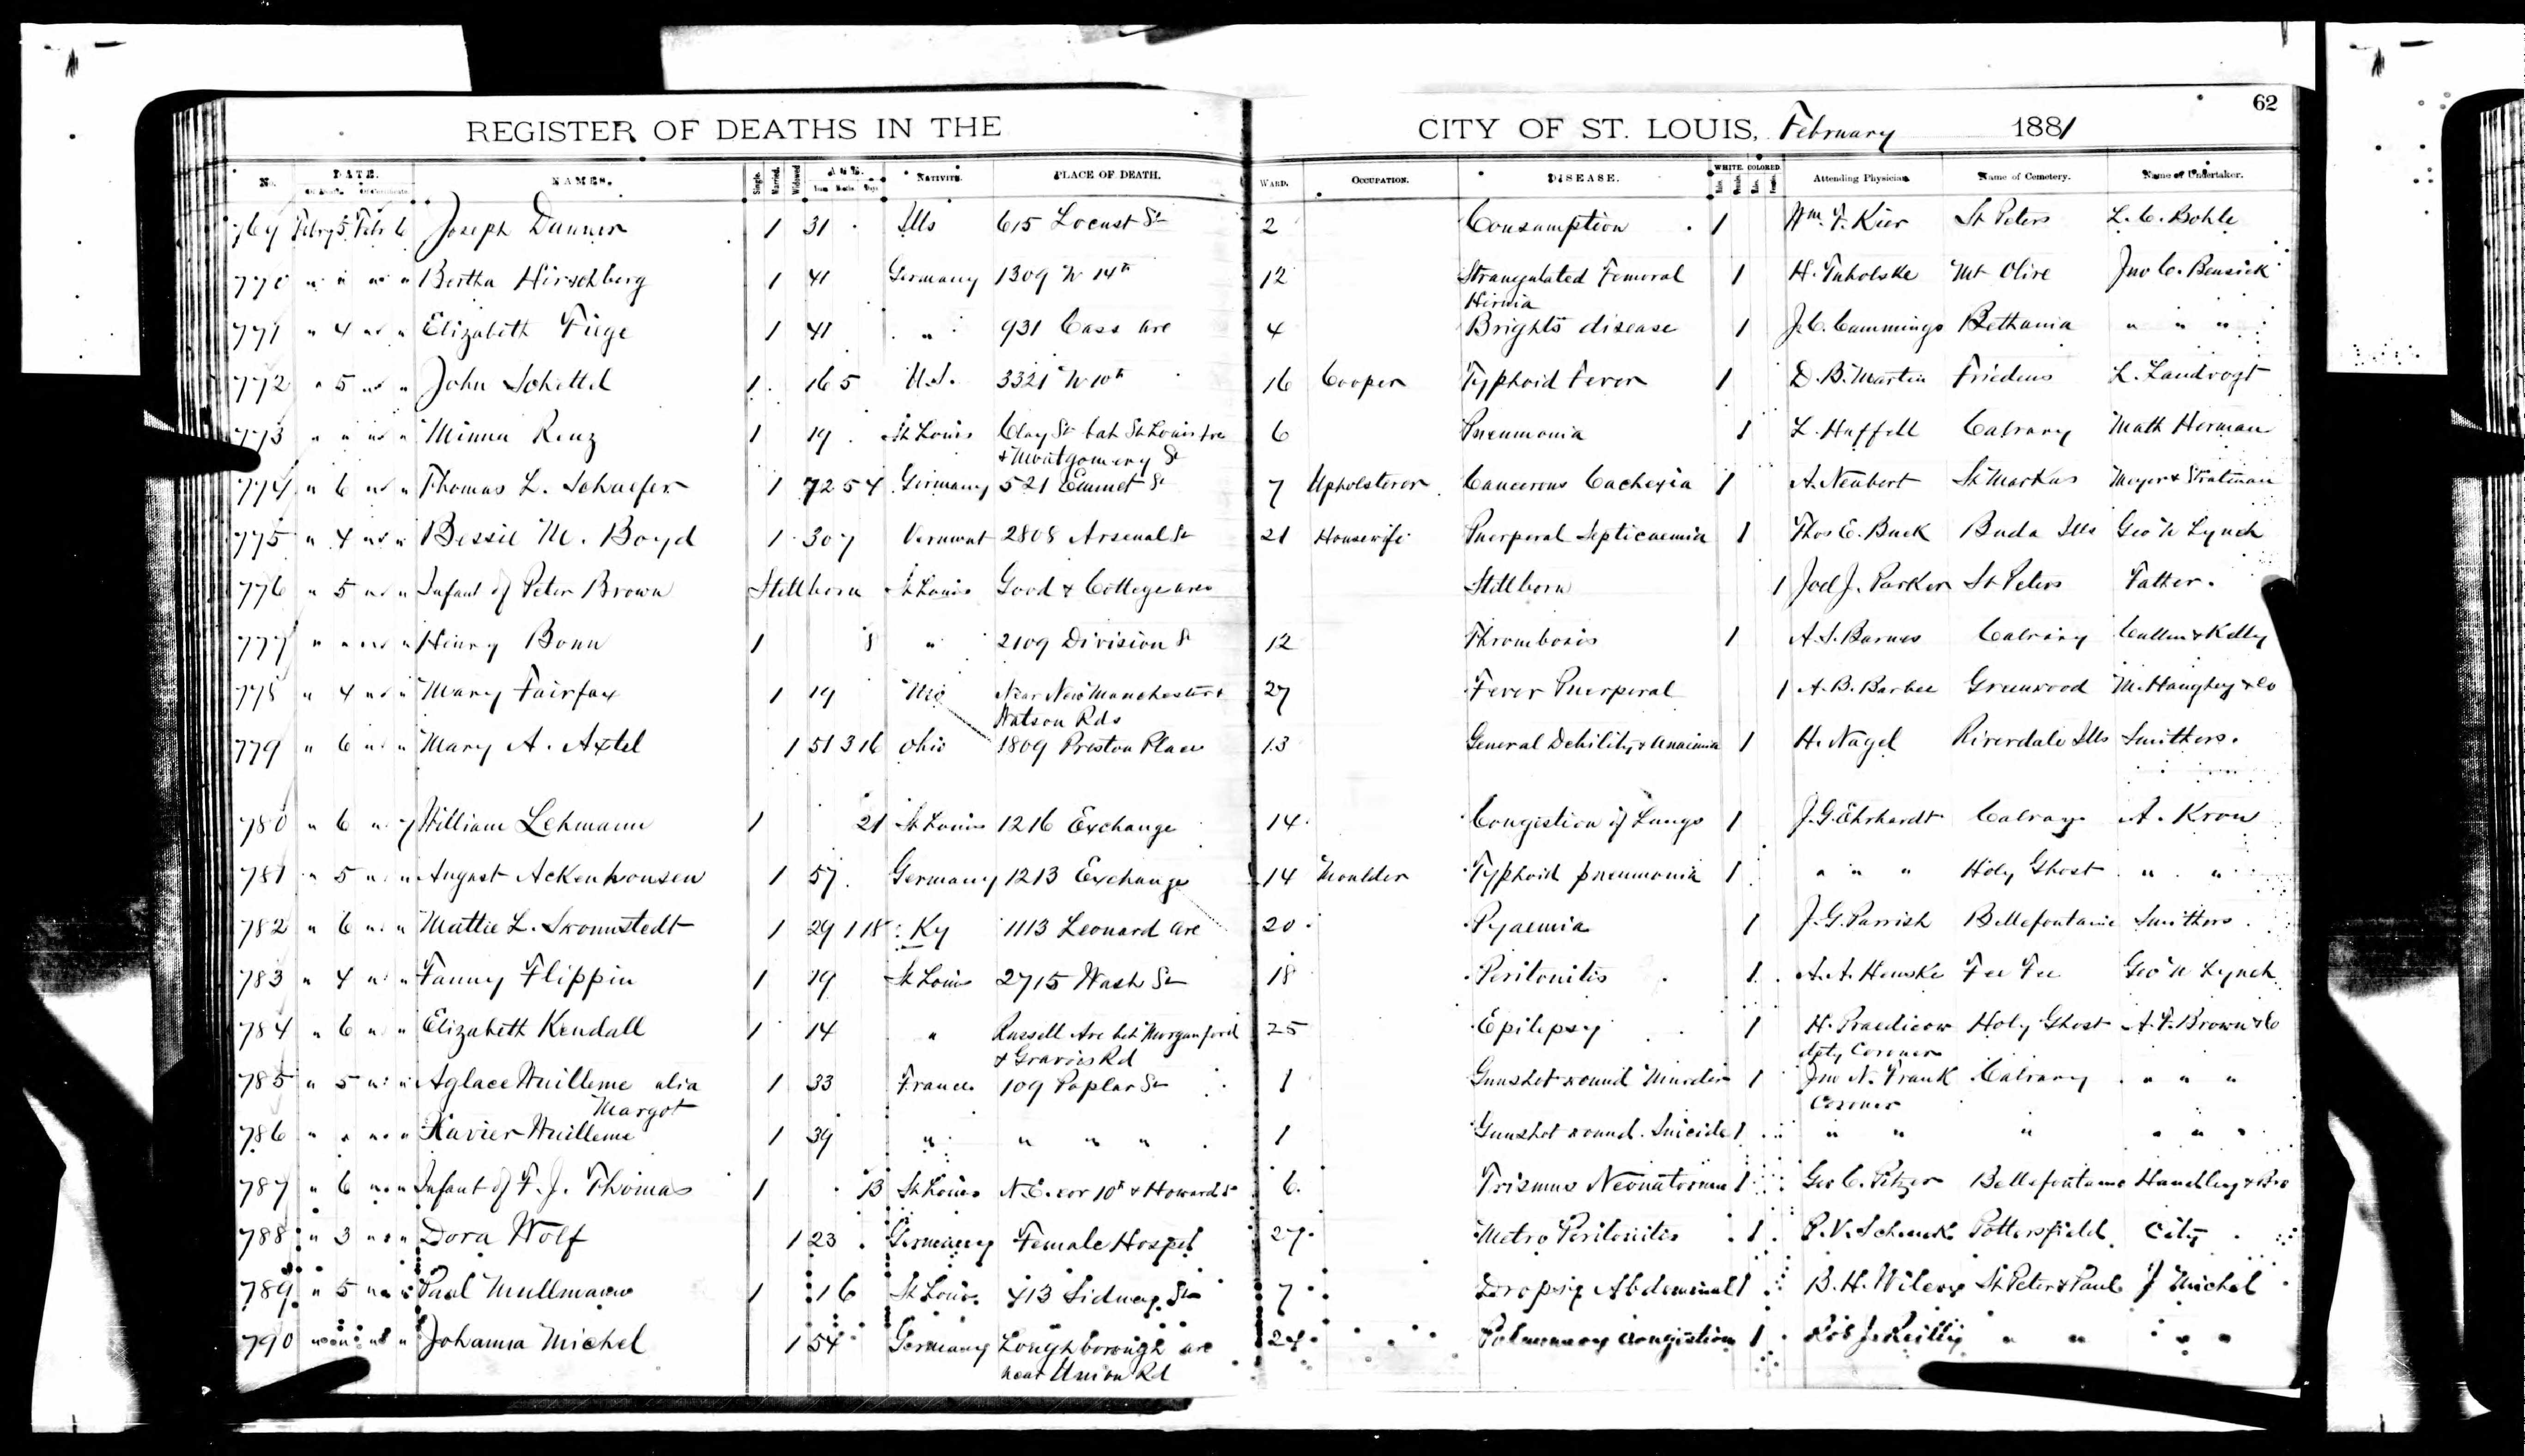 62
REGISTER OF DEATHS IN THE CITY OF ST. LOUIS, February 1881
No. DATE. NAMES. Single. Married. Widowed AGE. NATIVITY. PLACE OF DEATH. WARD. OCCUPATION. DISEASE. WHITE. COLORED. Attending Physician Name of Cemetery. Name of Undertaker.
769 Febry 5 Feb 6 Joseph Danner 1 31 Ills 615 Locust St 2 Consumption 1 Wm. F. Kier St Peters L. C. Bohle
770 " " " " Bertha Hirschberg 1 41 Germany 1309 N 14th 12 Strangulated Femoral 1 H. Tuholske Mt Olive Jno C. Bensiek
Hernia
771 " 4 " " Elizabeth Fiege 1 41 " 931 Cass ave 4 Brights disease 1 J. C. Cummings Bethania " " "
772 " 5 " " John Schettel 1 16 5 U.S. 3321 N 10th 16 Cooper Typhoid Fever 1 D. B. Martin Friedens L. Landvogt
773 " " " " Minna Renz 1 19 St Louis Clay St bet St Louis Ave 6 Pneumonia 1 L. Haffell Calvary Math Herman
& Montgomery St
774 " 6 " " Thomas L. Schaefer 1 72 5 4 Germany 521 Emmet St 7 Upholsterer Cancerous Cachexia 1 A. Neubert St Markus Meyer & Stratman
775 " 4 " " Bessie M. Boyd 1 30 7 Vermont 2808 Arsenal St 21 Housewife Puerperal Septicaemia 1 Thos E. Buck Buda Ills Geo N Lynch
776 " 5 " " Infant of Peter Brown Stillborn St Louis Good & College aves Stillborn 1 Joel J. Parker St Peters Father.
777 " " " " Henry Bonn 1 8 " 2109 Division St 12 Thrombosis 1 A. S. Barnes Calvary Cullen & Kelly
778 " 4 " " Mary Fairfax 1 19 Mo Near New Manchester & 27 Fever Puerperal 1 A. B. Barbee Greenwood M. Haughey & Co
Watson Rds
779 " 6 " " Mary A. Axtel 1 51 3 16 Ohio 1809 Preston Place 13 General Debility & Anaemia 1 H. Nagel Riverdale Ills Smithers.
780 " 6 " 7 William Lehmann 1 21 St Louis 1216 Exchange 14 Congestion of Lungs 1 J. G. Ehrhardt Calvary A. Kron
781 " 5 " " August Ackenhousen 1 57 Germany 1213 Exchange 14 Moulder Typhoid pneumonia 1 " " " Holy Ghost " "
782 " 6 " " Mattie L. Swomstedt 1 29 1 18 Ky 1113 Leonard ave 20 Pyaemia 1 J. G. Parrish Bellefontaine Smithers
783 " 4 " " Fanny Flippin 1 19 St Louis 2715 Wash St 18 Peritonitis 1 A. A. Henske Fee Fee Geo N Lynch
784 " 6 " " Elizabeth Kendall 1 14 " Russell Ave bet Morganford 25 Epilepsy 1 H. Praedicow Holy Ghost A. F. Brown & Co
& Gravois Rd dpty Coroner
785 " 5 " " Aglace Wuilleme alia 1 33 France 109 Poplar St 1 Gunshot wound Murder 1 Jno N. Frank Calvary " " "
Margot Coroner
786 " " " " Xavier Wuilleme 1 39 " " " " 1 Gunshot wound. Suicide 1 " " " " " "
787 " 6 " " Infant of F. J. Thomas 1 13 St Louis N. E. cor 10th & Howard St 6 Trismus Neonatorum 1 Geo C. Pitzer Bellefontaine Handley & Bro
788 " 3 " " Dora Wolf 1 23 Germany Female Hospt 27 Metro Peritonitis 1 P. V. Schenck Pottersfield City
789 " 5 " " Paul Mullmann 1 1 6 St Louis 713 Sidney St 7 Dropsy Abdominal 1 B. H. Wilcox St Peter & Paul J Michel
790 " " " " Johanna Michel 1 54 Germany Loughborough ave 24 Pulmonary Congestion 1 Rob J. Reilly " " " "
near Union Rd